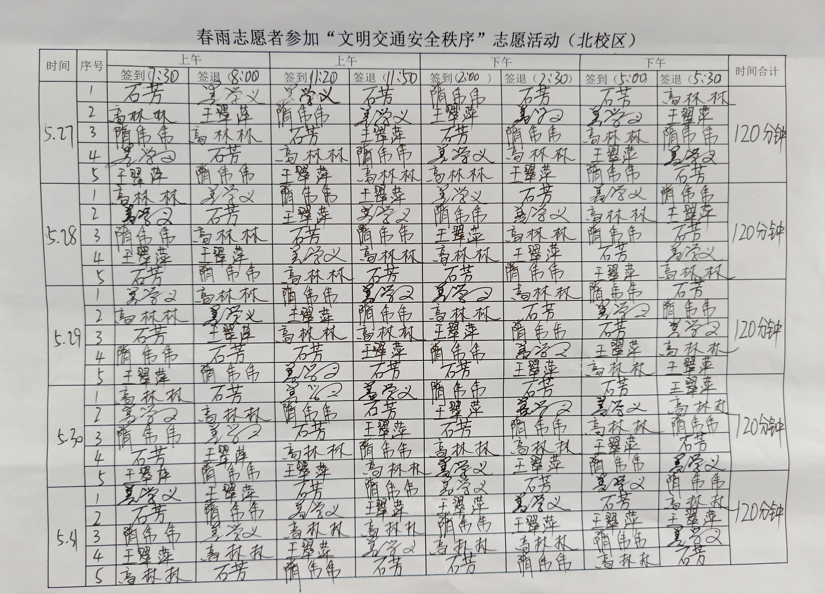 春雨志愿者参加“文明交通安全秩序”志愿活动（北校区）
时间 序号 上午 上午 下午 下午 时间合计
签到（7:30 签退（8:00） 签到（11:20 签退（11:50 签到（2:00） 签退（2:30） 签到（5:00） 签退（5:30
5.27 1 石芳 姜学义 姜学义 石芳 隋伟伟 石芳 石芳 高林林 120分钟
2 高林林 王翠萍 隋伟伟 姜学义 王翠萍 姜学义 姜学义 王翠萍
3 隋伟伟 高林林 石芳 王翠萍 石芳 隋伟伟 高林林 隋伟伟
4 姜学义 石芳 高林林 隋伟伟 姜学义 高林林 王翠萍 姜学义
5 王翠萍 隋伟伟 王翠萍 高林林 高林林 王翠萍 隋伟伟 石芳
5.28 1 高林林 姜学义 隋伟伟 王翠萍 姜学义 石芳 姜学义 隋伟伟 120分钟
2 姜学义 石芳 王翠萍 姜学义 隋伟伟 姜学义 高林林 王翠萍
3 隋伟伟 高林林 石芳 隋伟伟 王翠萍 高林林 隋伟伟 石芳
4 王翠萍 王翠萍 姜学义 高林林 高林林 王翠萍 石芳 姜学义
5 石芳 隋伟伟 高林林 石芳 石芳 隋伟伟 王翠萍 高林林
5.29 1 姜学义 高林林 隋伟伟 姜学义 姜学义 高林林 隋伟伟 石芳 120分钟
2 高林林 姜学义 王翠萍 隋伟伟 高林林 石芳 姜学义 隋伟伟
3 石芳 王翠萍 高林林 高林林 王翠萍 隋伟伟 石芳 姜学义
4 隋伟伟 石芳 石芳 王翠萍 隋伟伟 姜学义 王翠萍 高林林
5 王翠萍 隋伟伟 姜学义 石芳 石芳 王翠萍 高林林 王翠萍
5.30 1 高林林 石芳 姜学义 姜学义 隋伟伟 石芳 石芳 王翠萍 120分钟
2 姜学义 高林林 隋伟伟 石芳 王翠萍 姜学义 姜学义 高林林
3 隋伟伟 姜学义 石芳 王翠萍 石芳 隋伟伟 高林林 隋伟伟
4 石芳 王翠萍 高林林 隋伟伟 高林林 高林林 王翠萍 石芳
5 王翠萍 隋伟伟 王翠萍 高林林 姜学义 王翠萍 隋伟伟 姜学义
5.31 1 姜学义 王翠萍 石芳 隋伟伟 姜学义 石芳 姜学义 隋伟伟 120分钟
2 石芳 隋伟伟 姜学义 石芳 王翠萍 姜学义 石芳 高林林
3 隋伟伟 姜学义 高林林 高林林 隋伟伟 王翠萍 王翠萍 王翠萍
4 王翠萍 高林林 王翠萍 姜学义 高林林 高林林 隋伟伟 姜学义
5 高林林 石芳 隋伟伟 石芳 石芳 隋伟伟 高林林 石芳